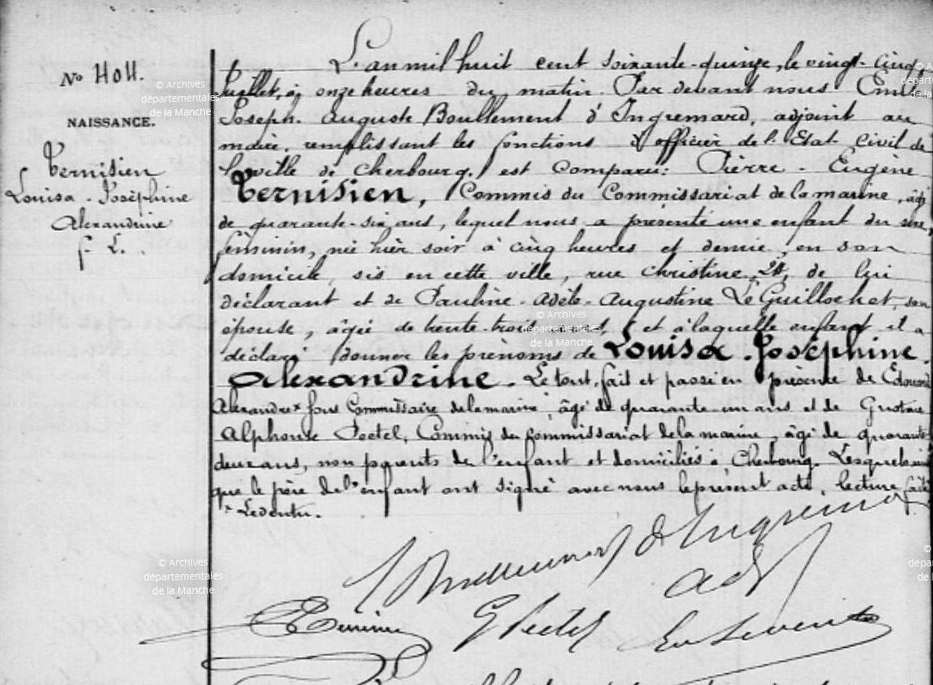 No 4011.
NAISSANCE.
Ternisien
Louisa-Joséphine
Alexandrine
f. L.
L'an mil huit cent soixante-quinze, le vingt-cinq
Juillet, à onze heures du matin. Par devant nous Emile
Joseph-Auguste Boullement d'Ingremard, adjoint au
maire, remplissant les fonctions d'officier de l'Etat civil de
la ville de Cherbourg, est comparu: Pierre-Eugène
Ternisien, Commis du Commissariat de la marine, âgé
de quarante-six ans, lequel nous a présenté une enfant du sexe
féminin, née hier soir à cinq heures et demie, en son
domicile, sis en cette ville, rue Christine, de lui
déclarant et de Pauline-Adèle-Augustine Le Guillochet, son
épouse, âgée de trente-trois et à laquelle enfant il a
déclaré donner les prénoms de Louisa-Joséphine-
Alexandrine. Le tout fait et passé en présence de Edouard
Alexandre x sous Commissaire de la marine, âgé de quarante un ans et de Gustave
Alphonse Poetel, Commis du Commissariat de la marine, âgé de quarante
deux ans, non parents de l'enfant et domiciliés à Cherbourg. Lesquels ainsi
que le père de l'enfant ont signé avec nous le présent acte, lecture faite
x Ledentu.
Boullement d'Ingremard
adj
© Archives
départementales
de la Manche
© Archives
départementales
de la Manche
© Archives
départementales
de la Manche